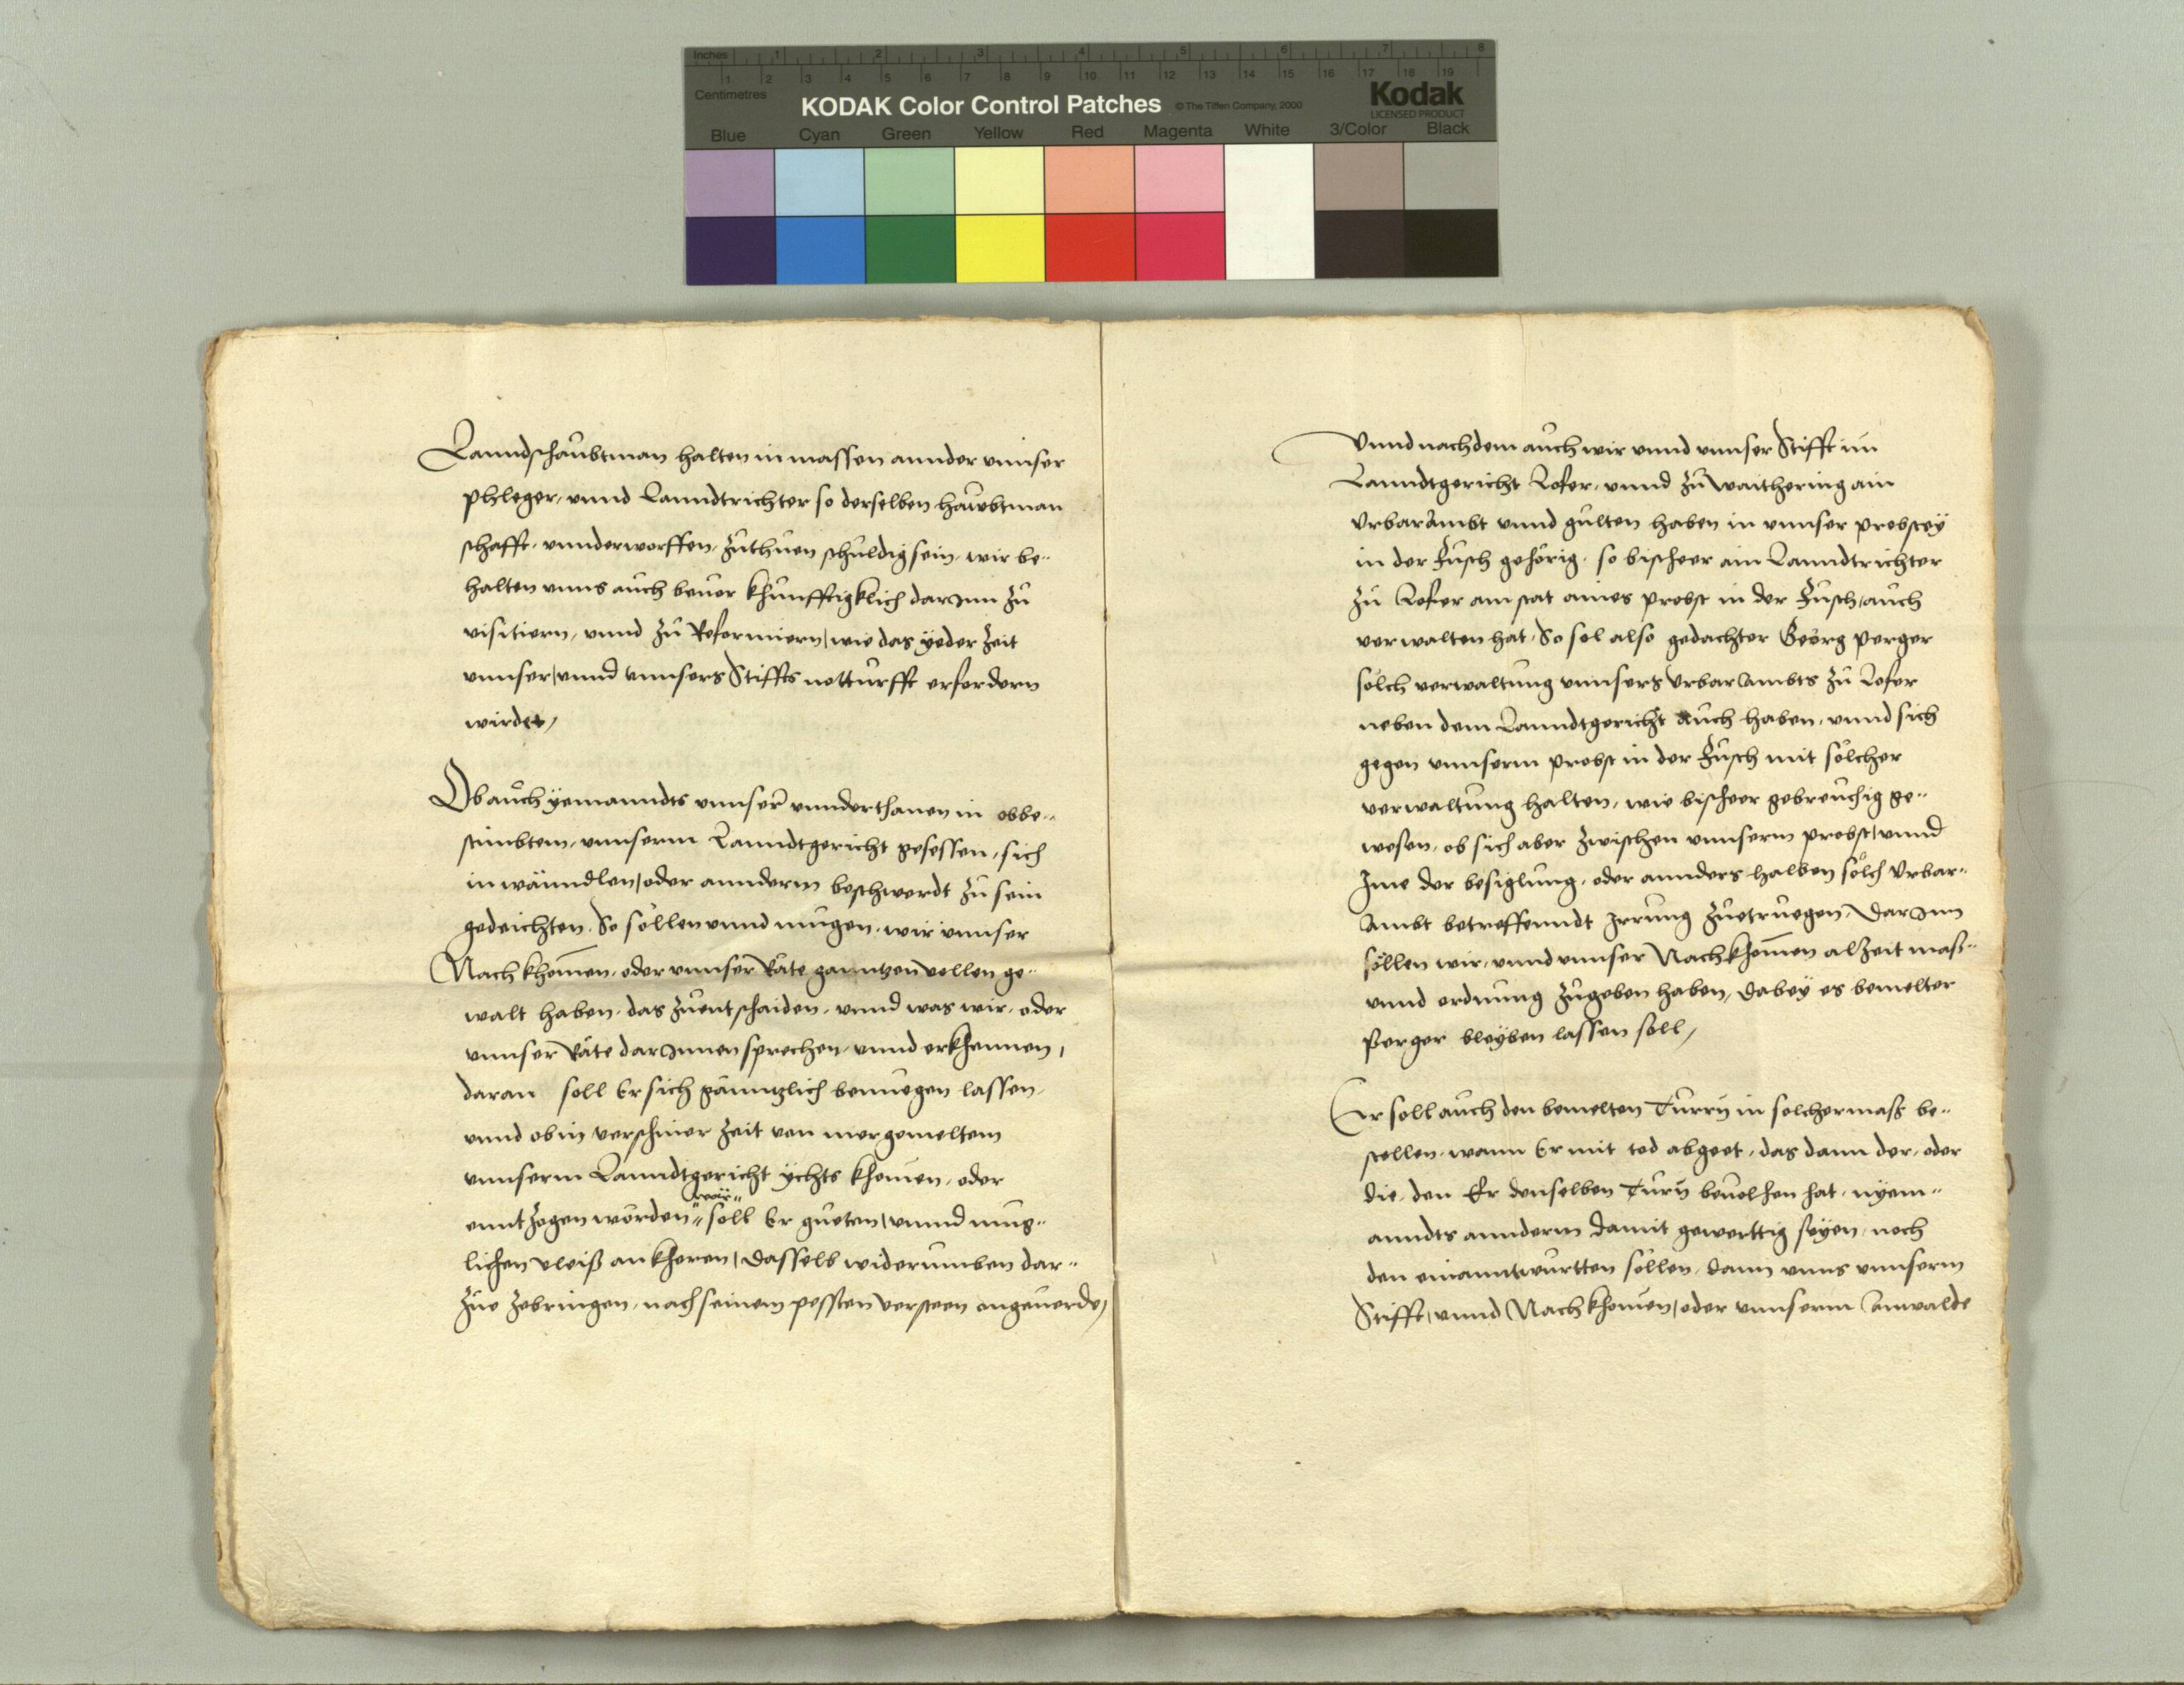 Inches 1 2 3 4 5 6 7 8
1 2 3 4 5 6 7 8 9 10 11 12 13 14 15 16 17 18 19
Centimetres
KODAK Color Control Patches © The Tiffen Company, 2000 Kodak
LICENSED PRODUCT
Blue Cyan Green Yellow Red Magenta White 3/Color Black
Lanndsshaubtman halten in massen annder vnnser
phleger, vnnd Lanndtrichter so derselben haubtman
schafft, vnnderworffen, zuthuen schuldig sein, wir be-
halten vnns auch beuor khunfftigklich darInn zu
visitiern, vnnd zu Reformiern, wie das yeder Zeit
vnnser, vnnd vnnsers Stiffts notturfft erfordern
wirdet,
Ob auch yemanndts vnnser vnnderthanen in obbe-
stimbtem, vnnserm Lanndtgericht gesessen, sich
in wänndlen, oder annderm beschwerdt zu sein
gedeichten, So sollen vnnd mugen, wir vnnser
Nachkhomen, oder vnnser Räte ganntzen vollen ge-
walt haben, das zuentschaiden, vnnd was wir, oder
vnnser Räte darInnen sprechen, vnnd erkhennen,
daran soll Er sich gänntzlich benuegen lassen,
vnnd ob in verschiner Zeit von mergemeltem
vnnserm Lanndtgericht ychts khomen, oder
wär-
enntzogen worden soll Er gueten, vnnd mug-
lichen vleiß ankheren, dasselb widerumben dar-
zue zebringen, nach seinem pessten versteen ongeuerde,
Vnnd nachdem auch wir vnnd vnnser Stifft im
Lanndtgericht Lofer, vnnd zu Waithering ain
Vrbarambt vnnd gulten haben in vnnser probstey
in der Fusch gehörig, so bisheer ain Lanndtrichter
zu Lofer anstat aines probst in der Fusch, auch
verwalten hat, So sol also gedachter Georg perger
solch verwaltung vnnsers Vrbar Ambts zu Lofer
neben dem Lanndtgericht auch haben, vnnd sich
gegen vnnserm probst in der Fusch mit solcher
verwaltung halten, wie bisheer gebreuchig ge-
wesen, ob sich aber zwischen vnnserm probst, vnnd
Ime der besiglung, oder annders halben solch Vrbar-
Ambt betreffenndt Irrung zuetruegen, DarInn
söllen wir, vnnd vnnser Nachkhomen alzeit maß
vnnd ordnung zugeben haben, dabey es bemelter
Perger bleyben lassen soll,
Er soll auch den bemelten Turrn in solchermaß be-
stellen, wann Er mit tod abgeet, das dann der, oder
die, den Er denselben Turn beuolhen hat, nyem-
anndts annderm damit gewerttig seyen, noch
den einanntwurtten söllen, dann vnns vnnserm
Stifft, vnnd Nachkhomen, oder vnnserm Anwalde